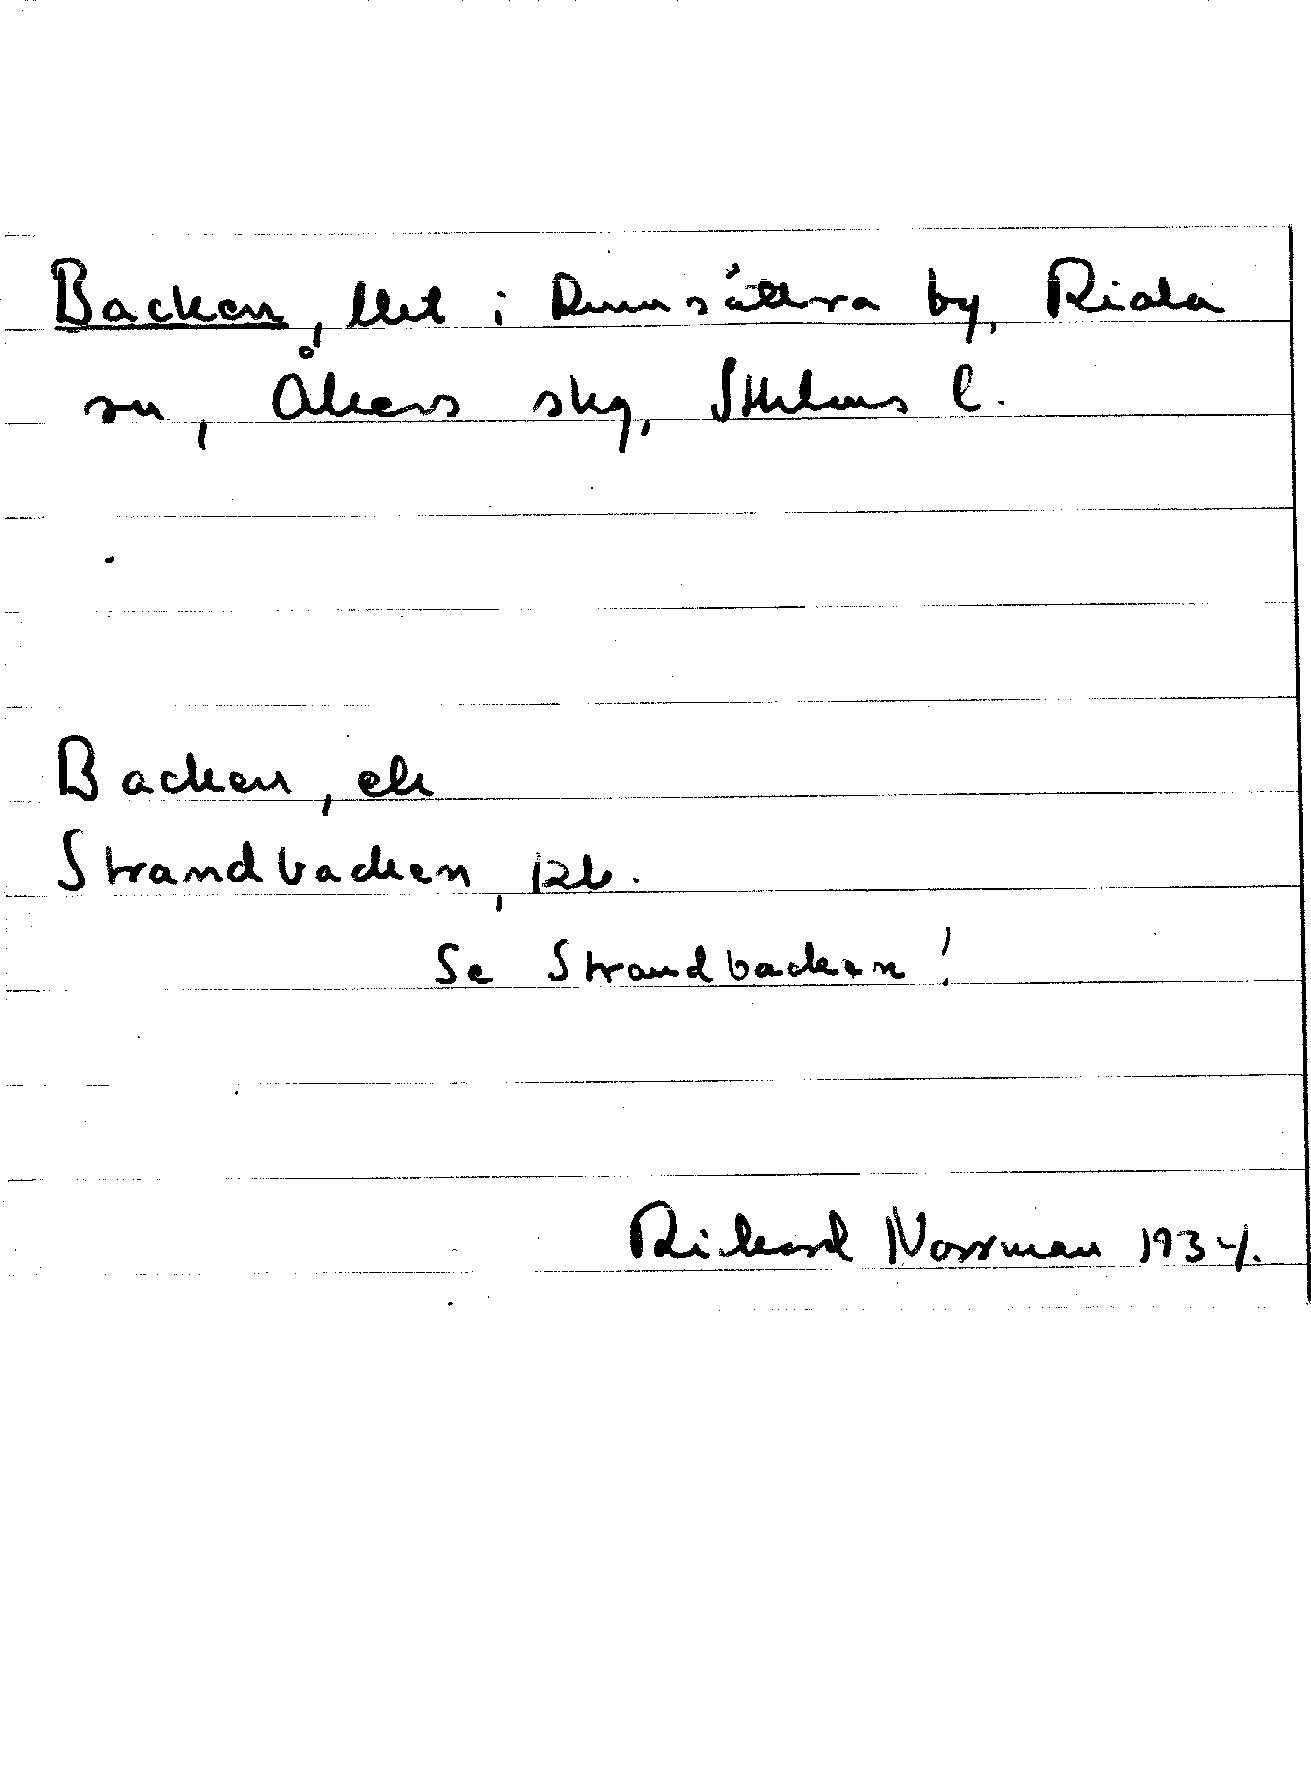 Backen, llet i Rumsättra by, Riala
sn, Åkers skg, Sthlms l.
Backen, el
Strandbacken,
Se Strandbacken!
Rickard Norrman 1934.